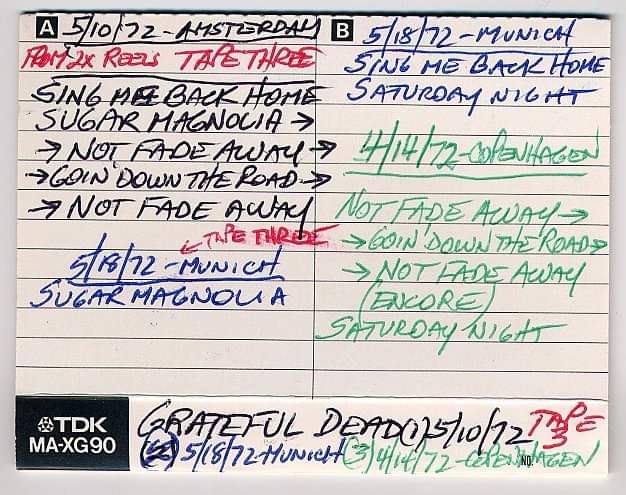 A 5/10/72 - AMSTERDAM
FROM 2X REELS TAPE THREE
SING ME BACK HOME
SUGAR MAGNOLIA →
→ NOT FADE AWAY →
→ GOIN' DOWN THE ROAD →
→ NOT FADE AWAY
← TAPE THREE
5/18/72 - MUNICH
SUGAR MAGNOLIA
B 5/18/72 - MUNICH
SING ME BACK HOME
SATURDAY NIGHT
4/14/72 - COPENHAGEN
NOT FADE AWAY →
→ GOIN' DOWN THE ROAD →
→ NOT FADE AWAY
(ENCORE)
SATURDAY NIGHT
TDK
MA-XG90
GRATEFUL DEAD (1) 5/10/72 TAPE 3
(2) 5/18/72 - MUNICH (3) 4/14/72 - COPENHAGEN
NO.